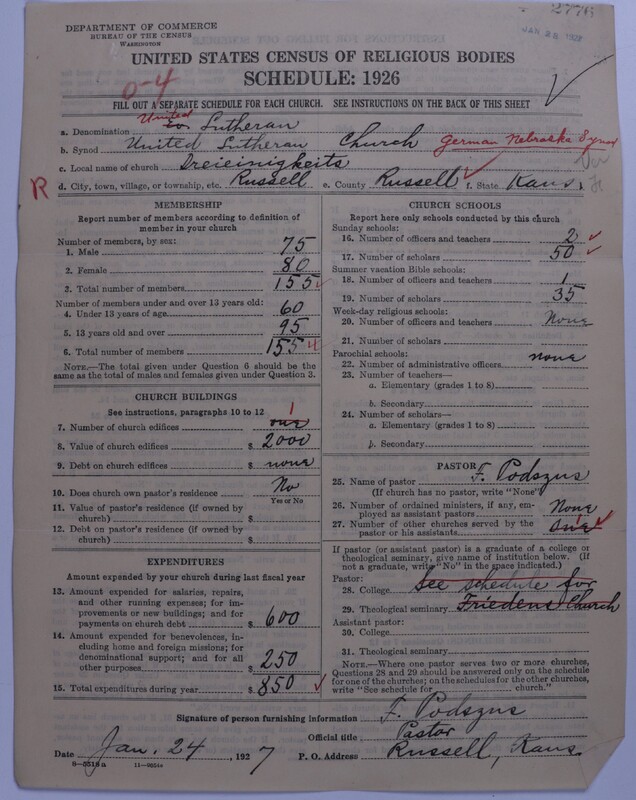 2776
JAN 28 1927
DEPARTMENT OF COMMERCE
BUREAU OF THE CENSUS
WASHINGTON
UNITED STATES CENSUS OF RELIGIOUS BODIES
SCHEDULE: 1926
0-4
FILL OUT A SEPARATE SCHEDULE FOR EACH CHURCH. SEE INSTRUCTIONS ON THE BACK OF THIS SHEET
United
a. Denomination Ev. Lutheran
b. Synod United Lutheran Church German Nebraska Synod
c. Local name of church Dreieinigkeits
R d. City, town, village, or township, etc. Russell e. County Russell f. State Kans.
MEMBERSHIP
Report number of members according to definition of
member in your church
Number of members, by sex:
1. Male 75
2. Female 80
3. Total number of members 155
Number of members under and over 13 years old:
4. Under 13 years of age 60
5. 13 years old and over 95
6. Total number of members 155
NOTE.—The total given under Question 6 should be
the same as the total of males and females given under Question 3.
CHURCH BUILDINGS
See instructions, paragraphs 10 to 12
7. Number of church edifices one 1
8. Value of church edifices $ 2000
9. Debt on church edifices $ none
10. Does church own pastor's residence No
Yes or No
11. Value of pastor's residence (if owned by
church) $
12. Debt on pastor's residence (if owned by
church) $
EXPENDITURES
Amount expended by your church during last fiscal year
13. Amount expended for salaries, repairs,
and other running expenses; for im-
provements or new buildings; and for
payments on church debt $ 600
14. Amount expended for benevolences, in-
cluding home and foreign missions; for
denominational support; and for all
other purposes $ 250
15. Total expenditures during year $ 850
CHURCH SCHOOLS
Report here only schools conducted by this church
Sunday schools:
16. Number of officers and teachers 2
17. Number of scholars 50
Summer vacation Bible schools:
18. Number of officers and teachers 1
19. Number of scholars 35
Week-day religious schools:
20. Number of officers and teachers None
21. Number of scholars
Parochial schools:
22. Number of administrative officers none
23. Number of teachers—
a. Elementary (grades 1 to 8)
b. Secondary
24. Number of scholars—
a. Elementary (grades 1 to 8)
b. Secondary
PASTOR
25. Name of pastor F. Podszus
(If church has no pastor, write "None")
26. Number of ordained ministers, if any, em-
ployed as assistant pastors None
27. Number of other churches served by the
pastor or his assistants one 1
If pastor (or assistant pastor) is a graduate of a college or
theological seminary, give name of institution below. (If
not a graduate, write "No" in the space indicated.)
Pastor:
28. College See schedule for
29. Theological seminary Friedens Church
Assistant pastor:
30. College
31. Theological seminary
NOTE.—Where one pastor serves two or more churches,
Questions 28 and 29 should be answered only on the schedule
for one of the churches; on the schedules for the other churches,
write "See schedule for church."
Signature of person furnishing information F. Podszus
Official title Pastor
Date Jan. 24, 1927 P. O. Address Russell, Kans.